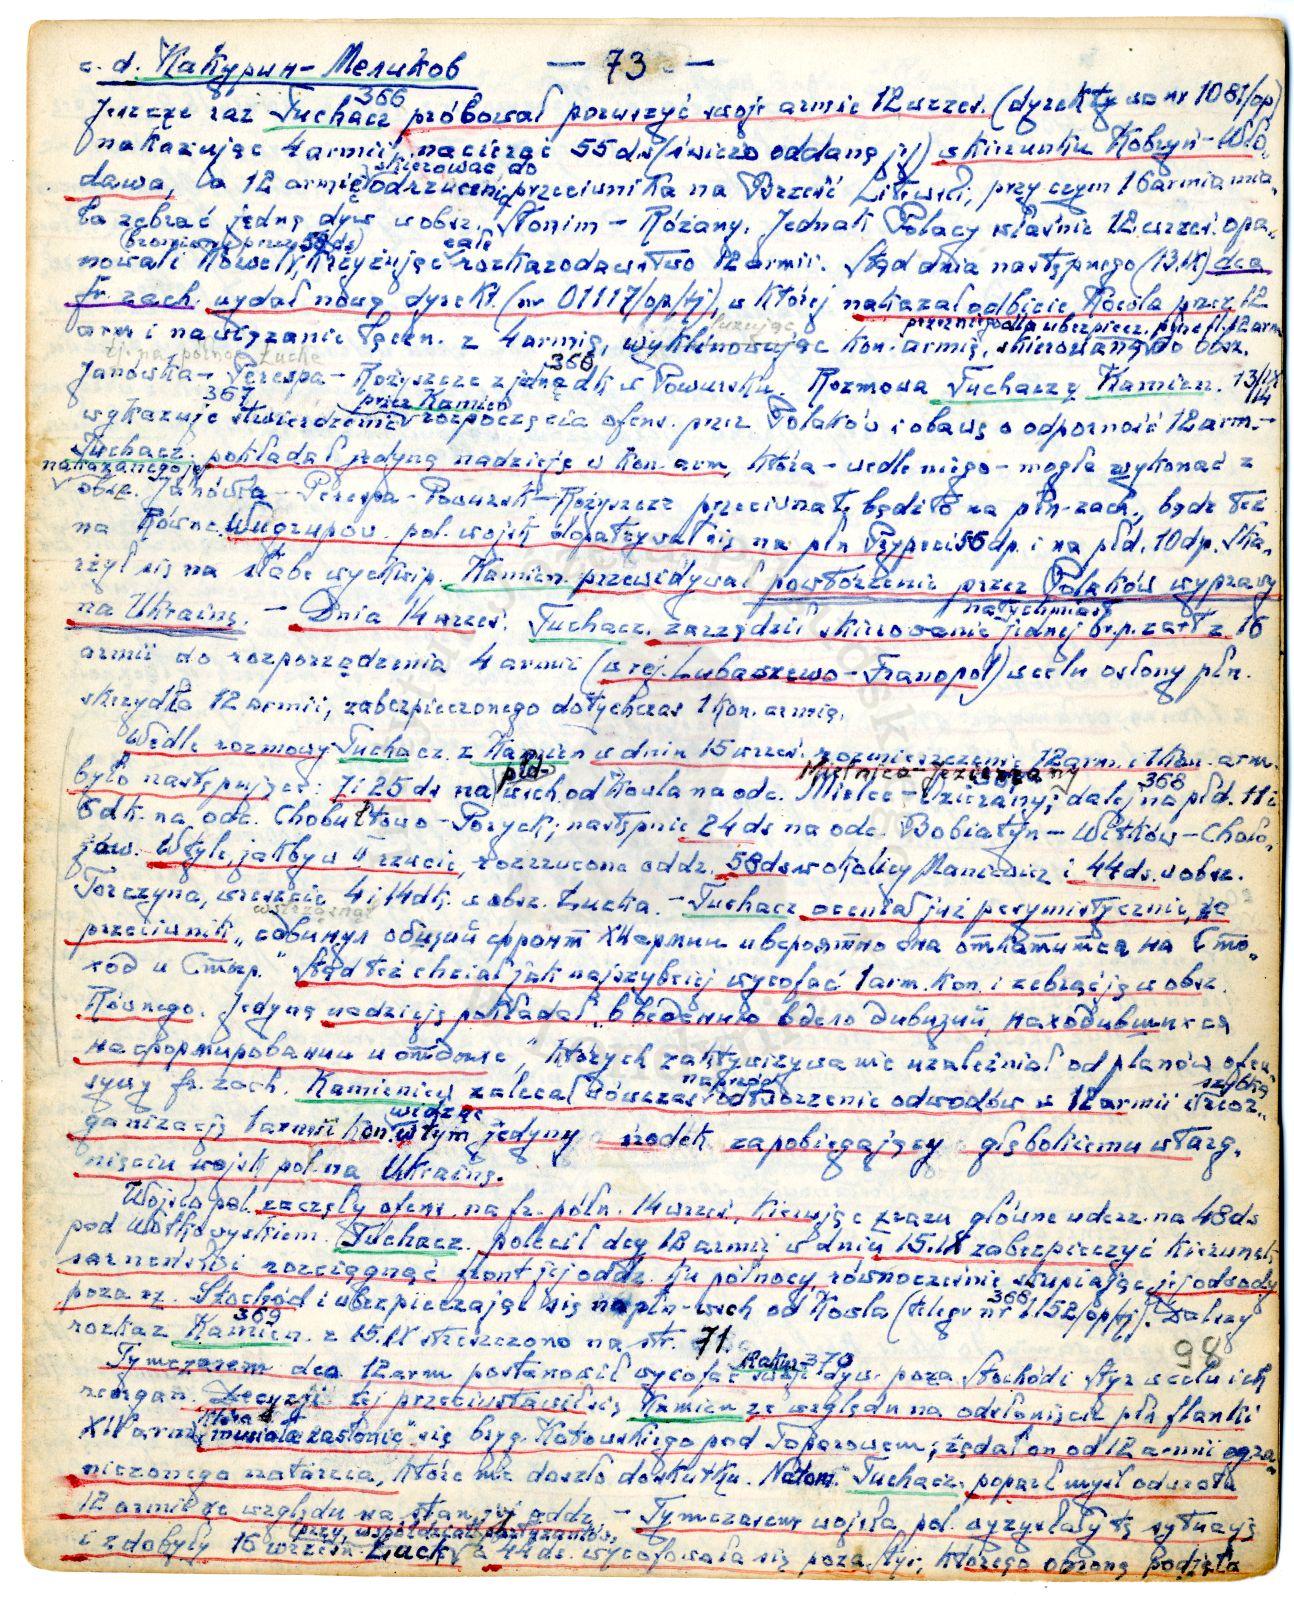 c. d. Какурин-Меликов — 73 —
Jeszcze raz Tuchacz. 366 próbował poruszyć swoje armie 12 wrześ. (dyrektywa nr 1081/op)
nakazując 4 armii nacierać 55 ds (świeżo oddaną jej) w kierunku Kobryń-Wło-
dawa, a 12 armię skierować do odrzucenia przeciwnika na Brześć Litewski, przy czym 16 armia mia-
ła zebrać jedną dyw. w obsz. Słonim - Różany. Jednak Polacy właśnie 12 wrześ. opa-
nowali Kowel (broniony przez 58 ds), krzyżując całe rozkazodawstwo 12 armii. Stąd dnia następnego (13.IX) dca
fr. zach. wydał nową dyrekt. (nr 01117/op/tj), w której nakazał odbicie Kowla przez 12
arm i nawiązanie łączn. z 4 armią, luzując wyklinowując kon. armię, skierowaną do obsz.
przeznacz. dla ubezpiecz. płn. fl. 12 arm.
tj. na północ Łucka
Janówka - Perespa - Rożyszcze z jedną dk w Powursku. 366 Rozmowa Tuchacz. z Kamien. 13/14 IX
wykazuje 367 stwierdzenie przez Kamien. rozpoczęcia ofens. przez Polaków i obawę o odporność 12 arm. -
Tuchacz. pokładał jedyną nadzieję w kon. arm, która - wedle niego - mogła wykonać z
nakazanego jej obsz. Janówka - Perespa - Powursk - Rożyszcze przeciwnat. bądź to na płn-zach., bądź też
na Równe. W ugrupow. pol. wojsk dopatrywał się na płn Prypeci 55 dp. i na płd. 10 dp. Ska-
rżył się na słabe wyekwip. Kamien. przewidywał powtórzenie przez Polaków wyprawy
na Ukrainę. - Dnia 14 wrześ. Tuchacz. zarządził natychmiast skierowanie jednej br. p. z art z 16
armii do rozporządzenia 4 armii (w rej. Lubaszewo - Franopol) w celu osłony płn.
skrzydła 12 armii, zabezpieczonego dotychczas 1 kon. armią.
Wedle rozmowy Tuchacz. z Kamien w dniu 15 wrześ. rozmieszczenie 12 arm. i 1 kon. arm.
było następujące: 7 i 25 ds na płd-wsch. od Kowla na odc. Mielce - Jezierzany; Mielnica-Jezierzany dalej 368 na płd. 11 i
6 dk. na odc. Chobułtowo - Poryck; następnie 24 ds na odc. Bobiatyn - Witków - Choło-
jów. W tyle, jakby w II rzucie, rozrzucone oddz. 58 ds w okolicy Maniewicz i 44 ds. w obsz.
Torczyna, wreszcie 4 i 14 dk. w obsz. Łucka. - Tuchacz oceniał już pesymistycznie, że
przeciwnik wstrząsnął „сдвинул общий фронт XII армии и вероятно она откатится на Сто-
ход и Стыр.” Stąd też chciał jak najszybciej wycofać 1 arm. kon. i zebrać ją w obsz.
Równego. Jedyną nadzieję pokładał „в введении в дело дивизий, находившихся
на сформировании и отдыхе,” których zaktywizywanie uzależniał od planów ofen-
sywy fr. zach. Kamieniew zalecał wówczas naprzód odtworzenie odwodów w 12 armii i szybką reor-
ganizację 1 armii kon. widząc w tym jedyny środek zapobiegający głębokiemu wtarg-
nięciu wojsk pol. na Ukrainę.
Wojsko pol. zaczęły ofens. na fr. półn. 14 wrześ., kierując zrazu główne uderz. na 48 ds
pod Wołkowyskiem. Tuchacz. polecił dcy 12 armii w dniu 15.IX zabezpieczyć kierunek
sarneński i rozciągnąć front jej oddz. ku północy, równocześnie skupiając jej odwody
poza rz. Stochód i ubezpieczając się na płn-wsch od Kowla (telegr nr 1152/op/tj). 368 Dalszy
rozkaz Kamien. 369 z 15.IX streszczono na str. 71.
98
Tymczasem dca 12 arm postanowił wycofać swoje dyw. poza Stochód i Styr w celu ich
reorgan. Decyzji tej przeciwstawił się Kamien ze względu na odsłonięcie płn flanki
XIV armii, która musiała „zasłonić” się bryg. Kotowskiego pod Toporowem; żądał on od 12 armii ogra-
niczonego natarcia, które nie doszło do skutku. Natom. Tuchacz. poparł myśl odwrotu
12 armii ze względu na stan jej oddz. - Tymczasem wojska pol. wyzyskały tę sytuację
i zdobyły 16 wrześn. (przy współdział. partyzantów) Łuck, a 44 ds. wycofowała się poza Styr, którego obronę podjęła